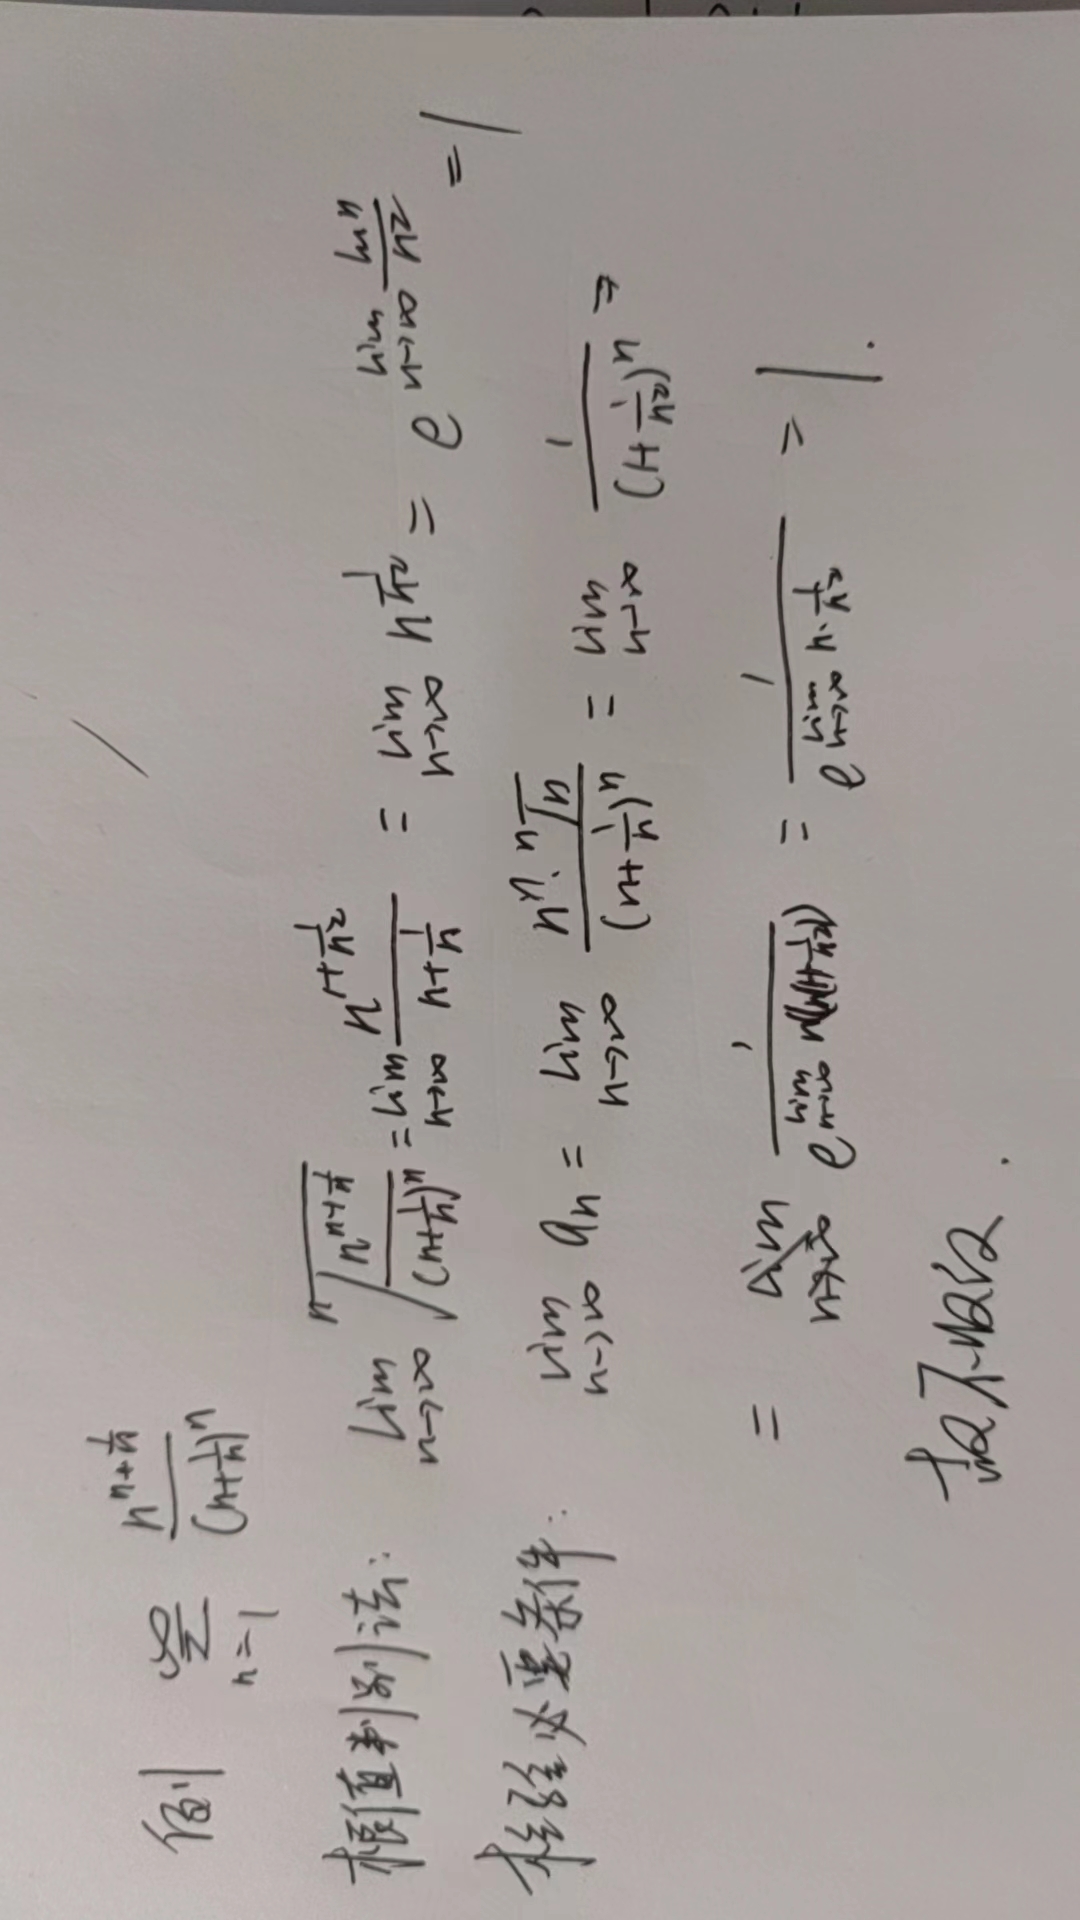 例 ∑_{n=1}^{∞} \frac{n^{n+\frac{1}{n}}}{(n+\frac{1}{n})^n}
根值判别法: \lim_{n→∞} \sqrt[n]{\frac{n^{n+\frac{1}{n}}}{(n+\frac{1}{n})^n}} = \lim_{n→∞} \frac{n^{1+\frac{1}{n^2}}}{n+\frac{1}{n}} = \lim_{n→∞} n^{\frac{1}{n^2}} = e^{\lim_{n→∞} \frac{\ln n}{n^2}} = 1
检验必要条件: \lim_{n→∞} a_n = \lim_{n→∞} \frac{n^n · \sqrt[n]{n}}{(n+\frac{1}{n})^n} = \lim_{n→∞} \frac{1}{(1+\frac{1}{n^2})^n} =
= \frac{1}{e^{\lim_{n→∞} n(\ln(1+\frac{1}{n^2}))}} = \frac{1}{e^{\lim_{n→∞} n·\frac{1}{n^2}}} = 1.
故不收敛.